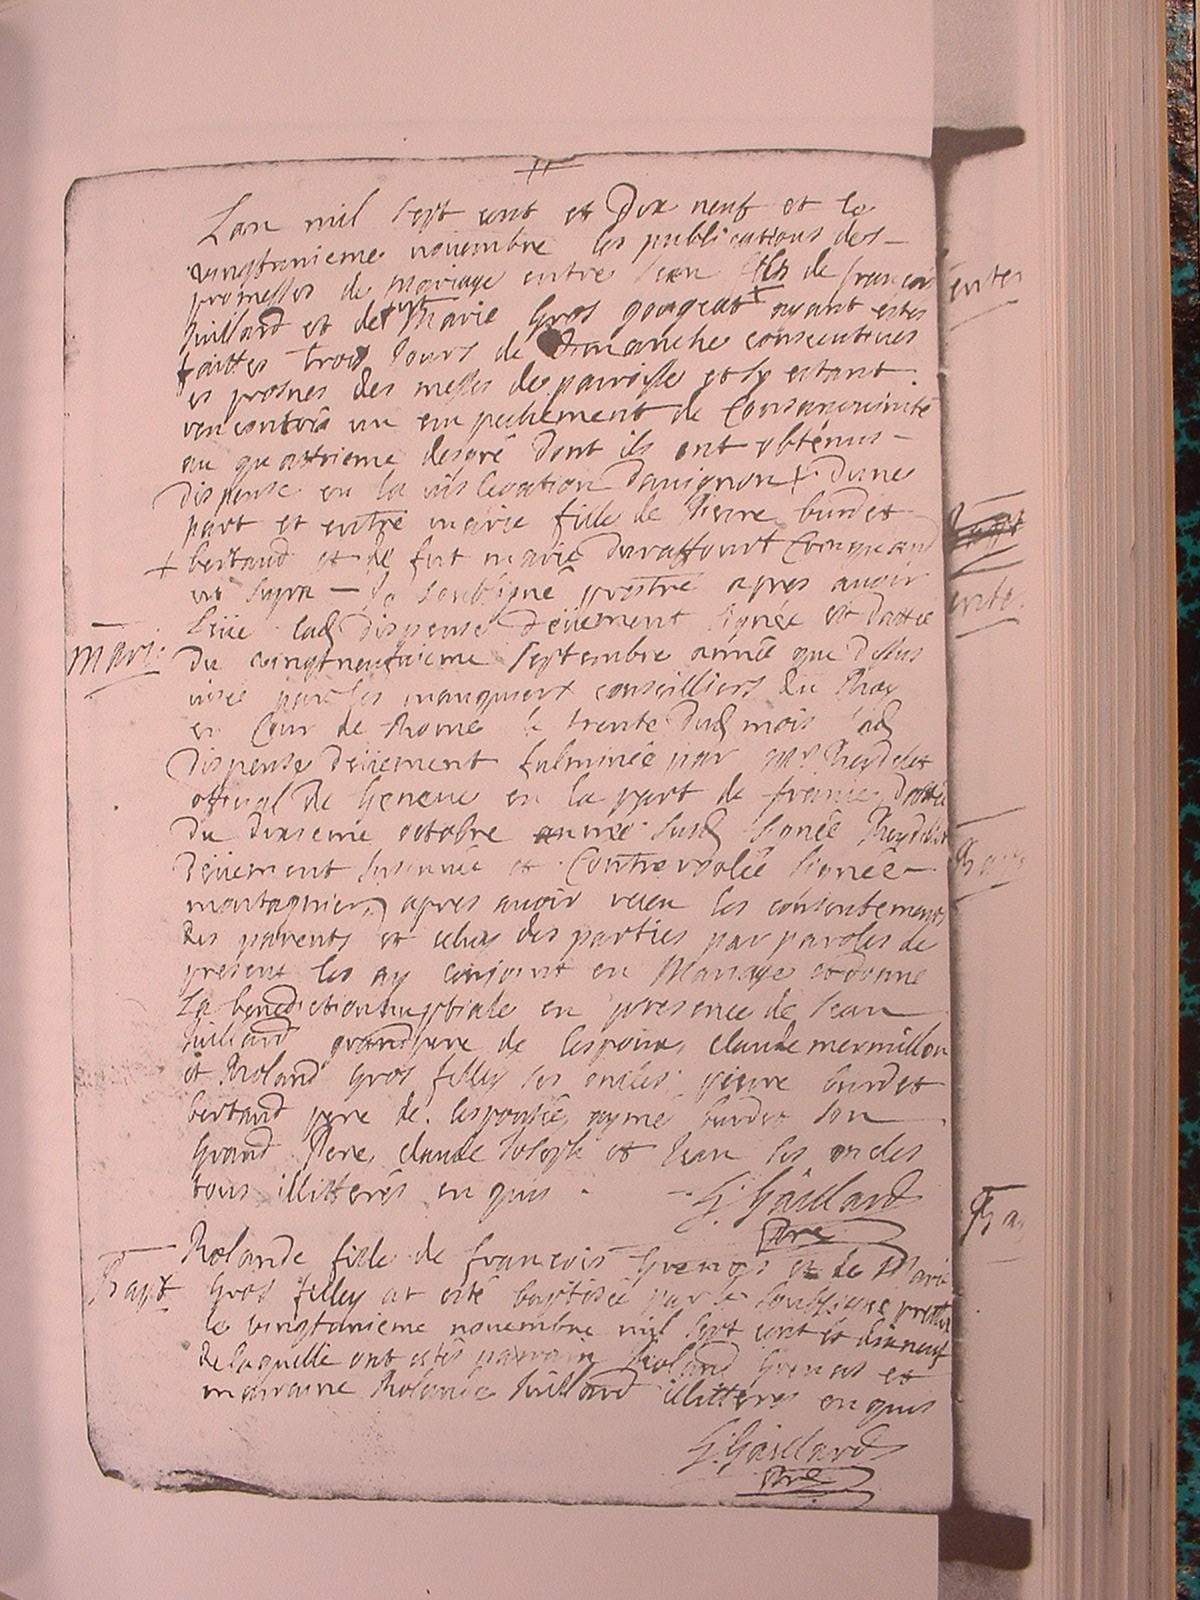 Lan mil sept cent et dix neuf et le
vingtunieme novembre les publications des
promesses de mariage entre Jean fils de francois
Juillard et de fut Marie Gros gougeat + ayant estés
faittes trois Jours de dimanche consecutives
es prosnes des messes de parroisse et sy estant
rencontrés un empechement de Consanguinité
au quattrieme degré dont ils ont obtenus
dispense en la vislegation davignon + dune
part et entre marie fille de Pierre burdet
+ bertand et de fut marie duraffourt
ut supra — Je soubsigné prestre apres avoir
leüe lad dispense deüement signée et dattée
du vingtneufvieme septembre année que dessus
visée par les conseilliers du Roy
en Cour de Rome le trente dud mois lad
dispense deüement fulminée par Mr Reydelet
official de Geneve en la part de france, dattée
du dixieme octobre année susd signée Reydelet
deüement Insinuée et Controrolée signée
montagnier, apres avoir receu les consentements
des parents et celuy des parties par paroles de
present les ay conjoint en Mariage et donné
La benediction nuptiale en presence de Jean
Juillard grandpere de lespoux, claude mermillon
et Roland Gros filley ses oncles, pierre burdet
bertand pere de lespouse, aymé burdet son
Grand Pere, claude Joseph et Jean ses oncles
tous illitterés enquis.
G. Gaillard
Pre
Mari:
Bapt
Rolande fille de francois Grenos et de Marie
Gros filley at esté baptisée par le soubsigné prestre
le vingtunieme novembre mil sept cent et dixneuf
de laquelle ont estés parrain Roland Grenos et
marraine Rolande Juillard illitteres enquis
G. Gaillard
Pre